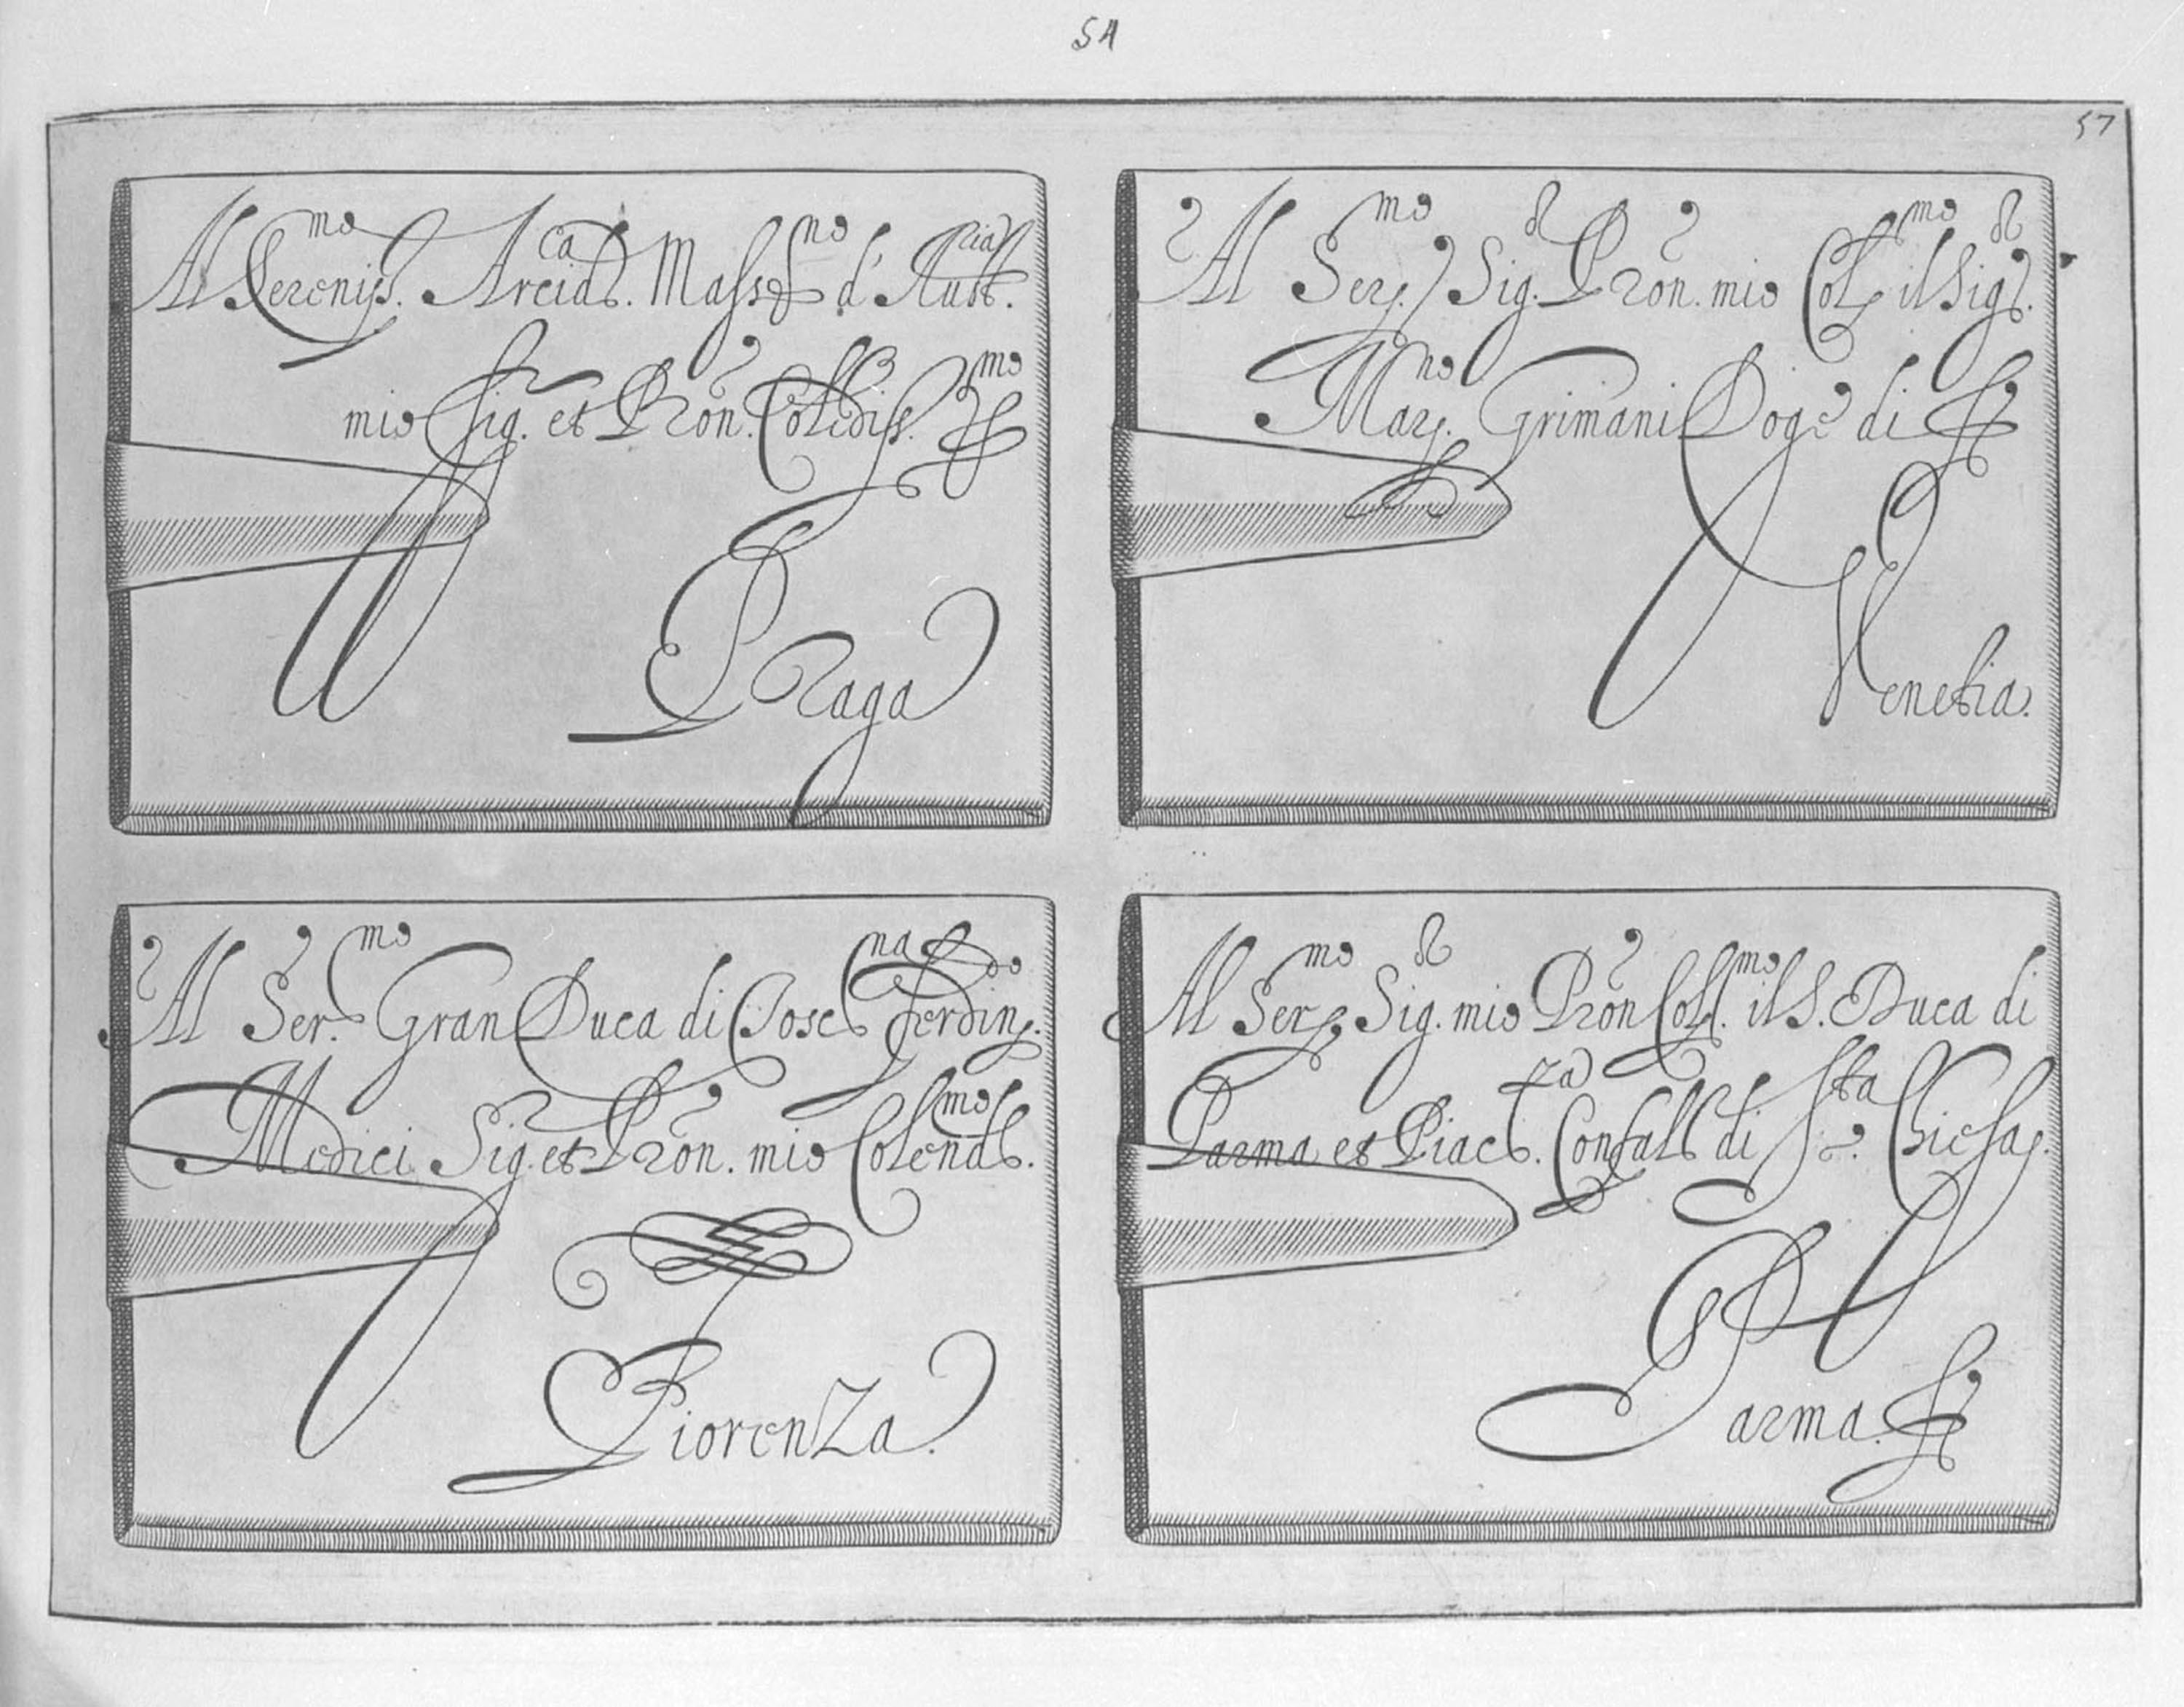 54
57
Al Sereniss.mo Arcid.ca Mass.no d'Aust.ria
mio Sig. et Pron. Colédiss.mo
Praga
Al Ser.mo Sig. Pron. mio Col.mo il Sig.
Mar.no Grimani Doge di
Venetia.
Al Ser.mo Gran Duca di Tosc.na Ferdin.do
Medici Sig. et Pron. mio Colend.mo
Fiorenza.
Al Ser.mo Sig. mio Pron Coll.mo il S. Duca di
Parma et Piac.za Confal. di S.ta Chiesa.
Parma.